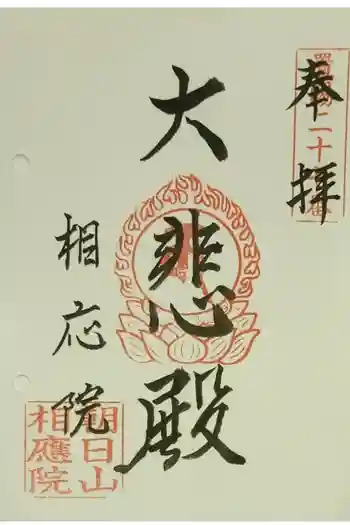 奉拝
二十
番
大悲殿
相応院
朝日山
相應院